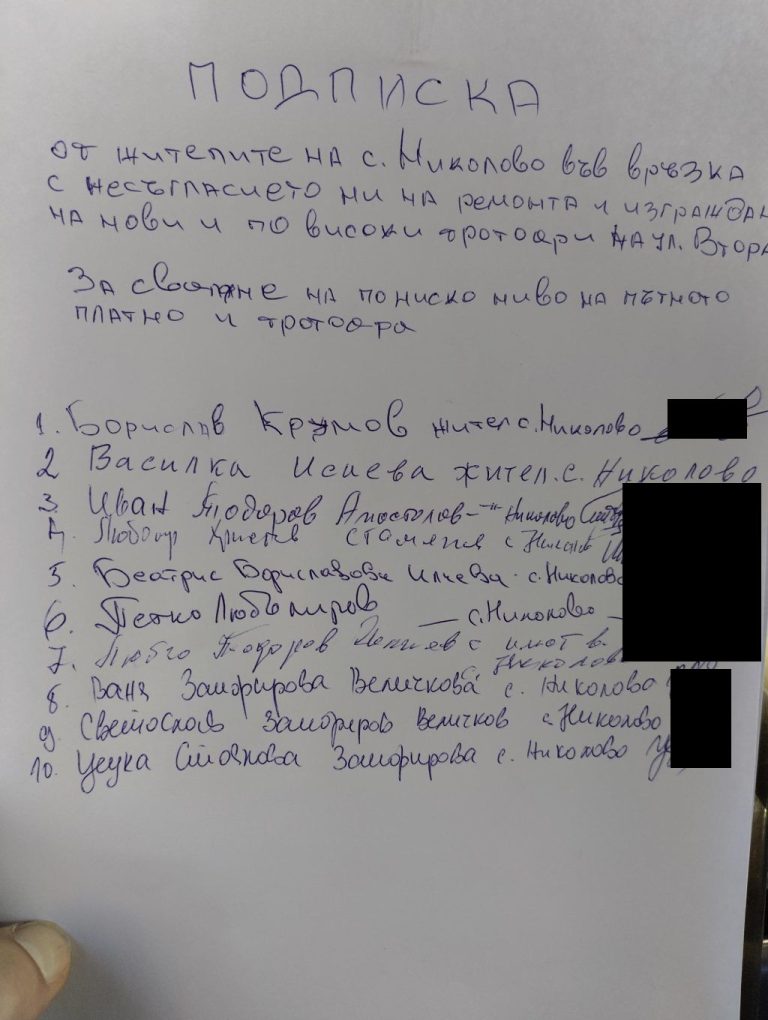 ПОДПИСКА
от жителите на с. Николово във връзка
с несъгласието ни на ремонта и изграждан
на нови и по високи тротоари на ул. Втора
За сваляне на по ниско ниво на пътното
платно и тротоара
1. Борислав Крумов жител с. Николово
2 Василка Исаева жител. с. Николово
3. Иван Тодоров Апостолов -"- Николово
4. Любомир Христов с
5. Беатрис Бориславова Илиева - с. Николово
6. Петко Любомиров — с. Николово —
7. Тодоров с имот в.
с. Николово
8. Ваня Замфирова Величкова с. Николово
9. Светослав Замфиров Величков с. Николово
10. Цеука Стоянова Замфирова с. Николово